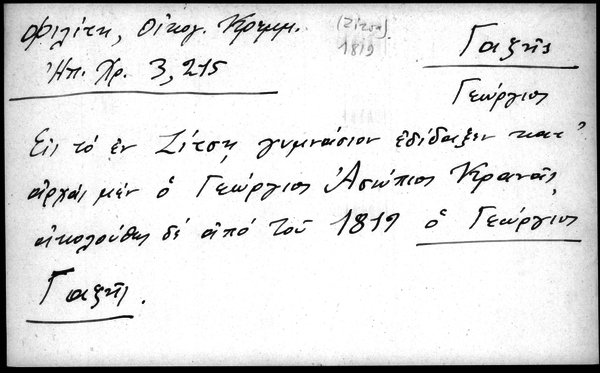 Φιλίτη, Οἰκογ. Κρυμμ.
Ἠπ. Χρ. 3, 215
(Ζίτσα).
1819
Γαζῆς
Γεώργιος
Εἰς τό ἐν Ζίτσῃ γυμνάσιον ἐδίδαξεν κατ'
ἀρχάς μέν ὁ Γεώργιος Ἀσώπιος Κραναῖς,
ἀκολούθως δέ ἀπό τοῦ 1819 ὁ Γεώργιος
Γαζῆς.